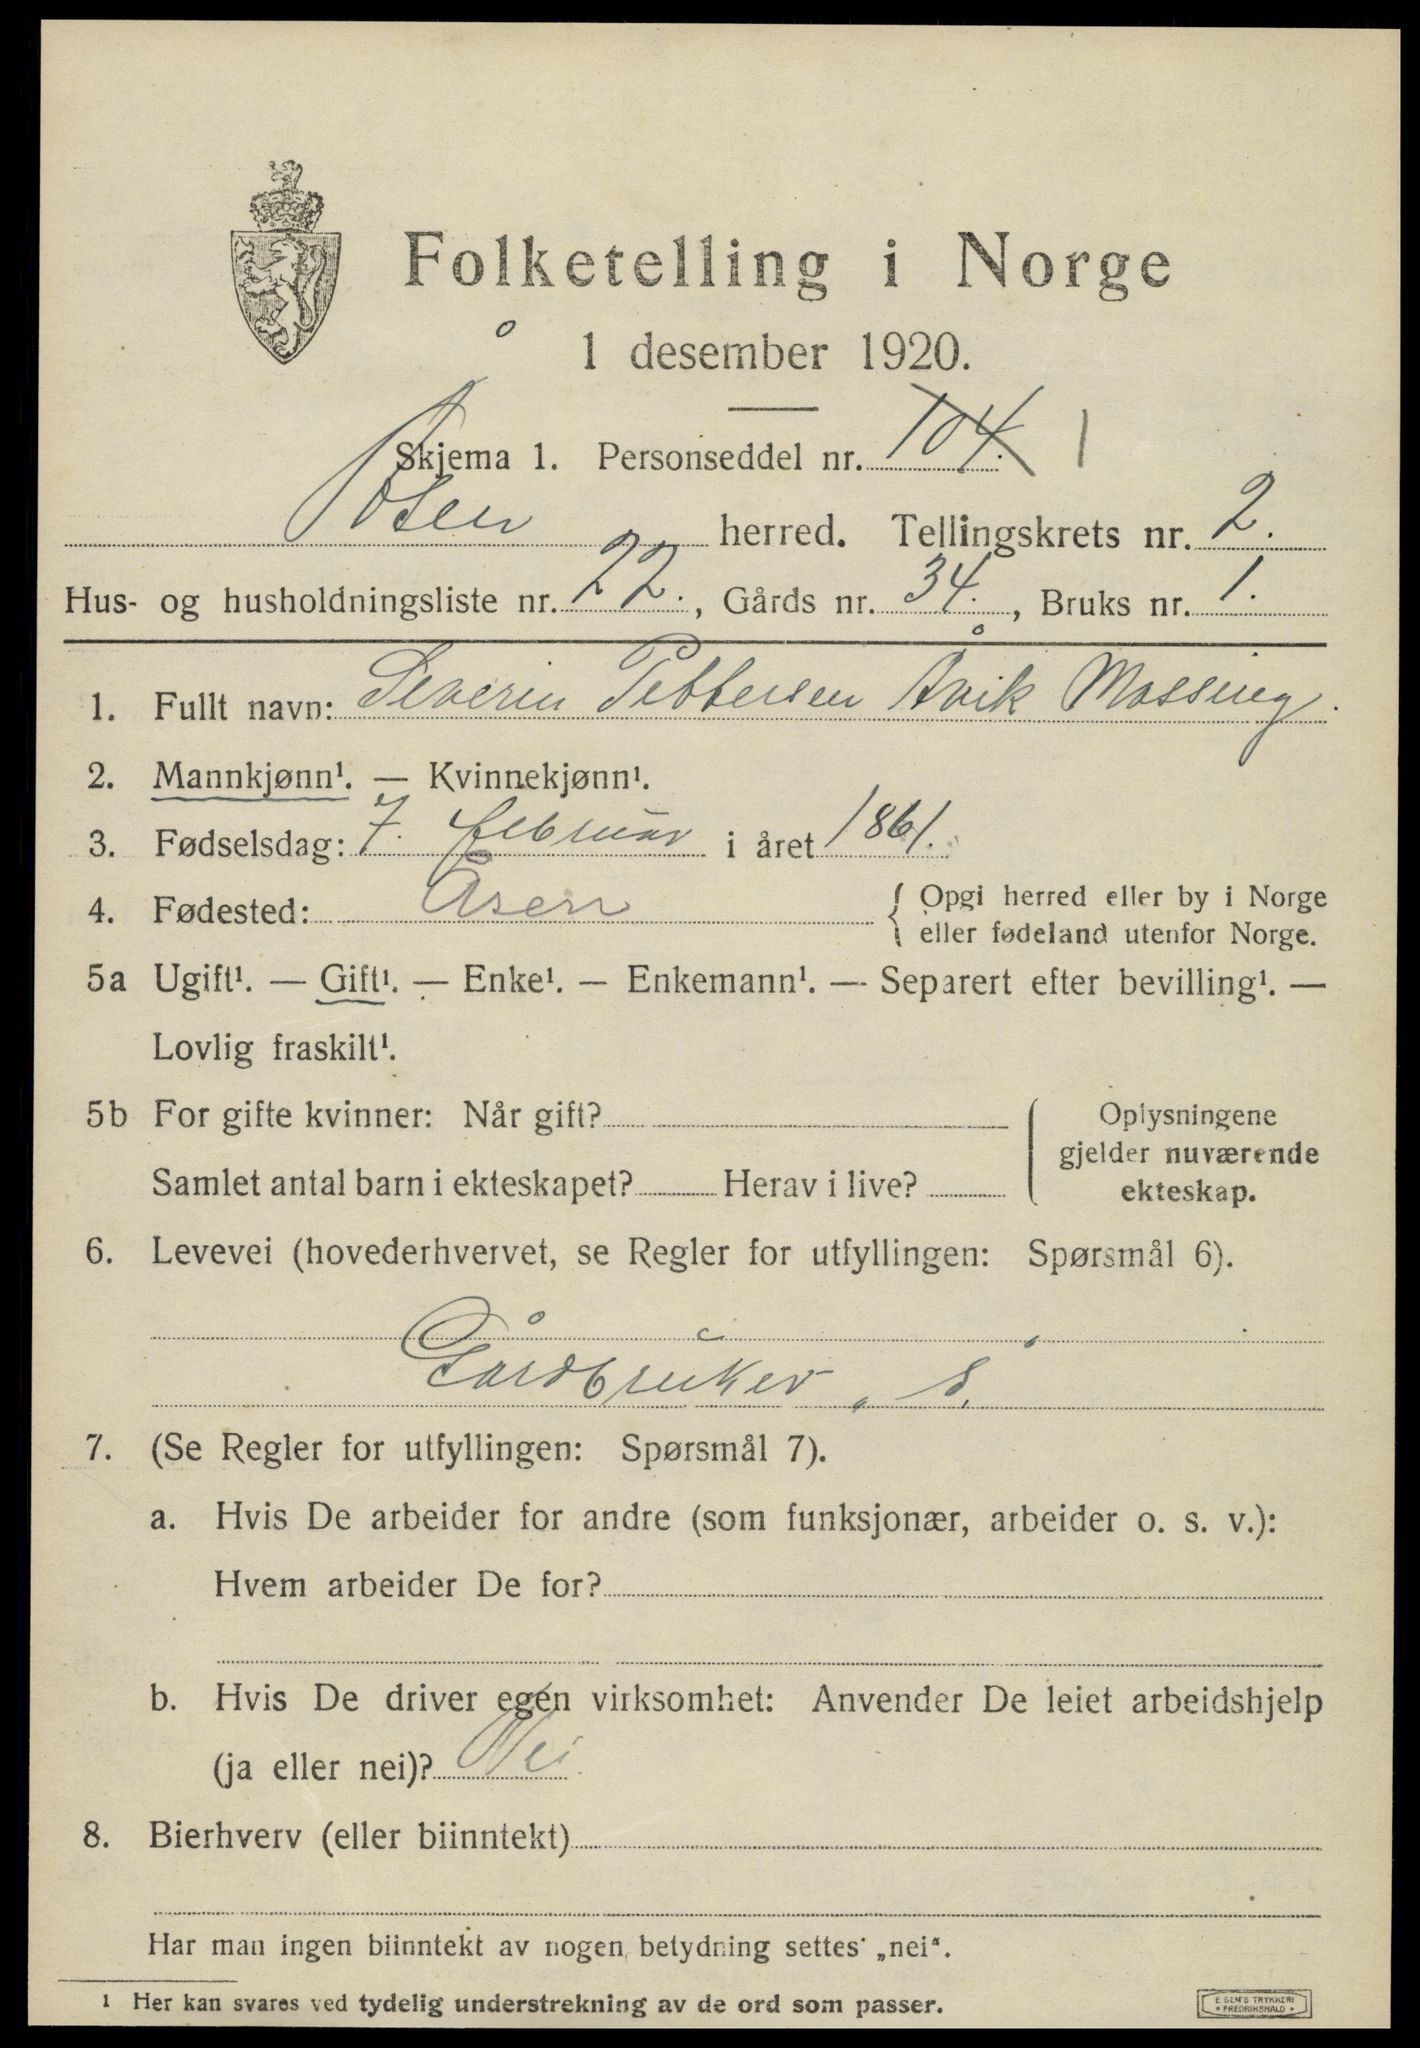 Folketelling i Norge
1 desember 1920.
Skjema 1. Personseddel nr. 104. 1
Åsen herred. Tellingskrets nr. 2.
Hus- og husholdningsliste nr. 22., Gårds nr. 34., Bruks nr. 1.
1. Fullt navn: Severin Pettersen Åvik Mossing.
2. Mannkjønn¹. — Kvinnekjønn¹.
3. Fødselsdag: 7. februar i året 1861.
4. Fødested: Åsen { Opgi herred eller by i Norge
eller fødeland utenfor Norge.
5a Ugift¹. — Gift¹. — Enke¹. — Enkemann¹. — Separert efter bevilling¹. —
Lovlig fraskilt¹.
5b For gifte kvinner: Når gift? ( Oplysningene
gjelder nuværende
Samlet antal barn i ekteskapet? Herav i live? ekteskap.
6. Levevei (hovederhvervet, se Regler for utfyllingen: Spørsmål 6).
Gårdbruker „ S.
7. (Se Regler for utfyllingen: Spørsmål 7).
a. Hvis De arbeider for andre (som funksjonær, arbeider o. s. v.):
Hvem arbeider De for?
b. Hvis De driver egen virksomhet: Anvender De leiet arbeidshjelp
(ja eller nei)? Nei
8. Bierhverv (eller biinntekt)
Har man ingen biinntekt av nogen betydning settes „nei“.
1 Her kan svares ved tydelig understrekning av de ord som passer.
E. SEM'S TRYKKERI
• FREDRIKSHALD •